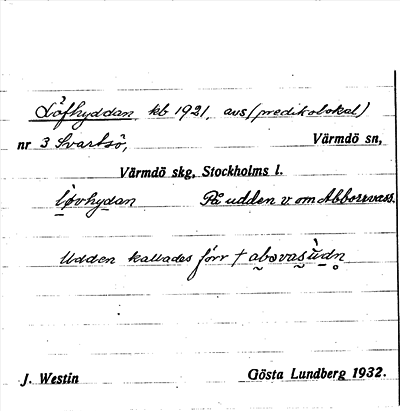 Löfhyddan, kb 1921, avs (predikolokal)
nr 3 Svartsö, Värmdö sn,
Värmdö skg, Stockholms l.
løvhydan På udden v om Abborrvass.
Udden kallades förr † abovasùdn̥
J. Westin Gösta Lundberg 1932.